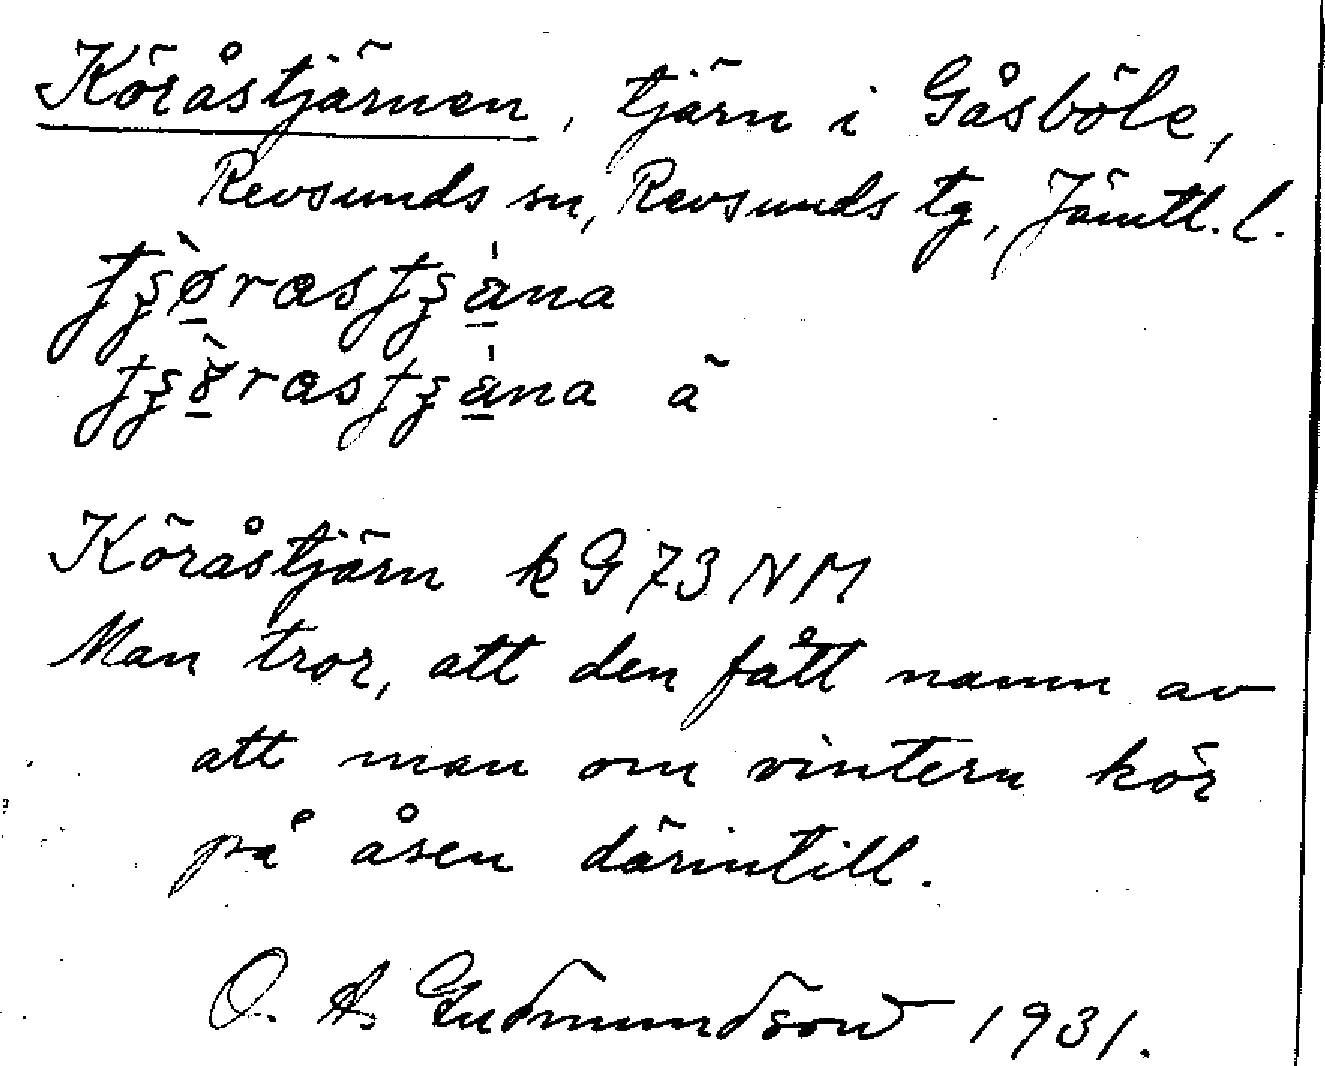 Köråstjärnen, tjärn i Gåsböle,
Revsunds sn, Revsunds tg, Jämtl. l.
Köråstjärn k G 73 NM
Man tror, att den fått namn av
att man om vintern kör
på åsen därintill.
O. A. Gudmundson 1931.